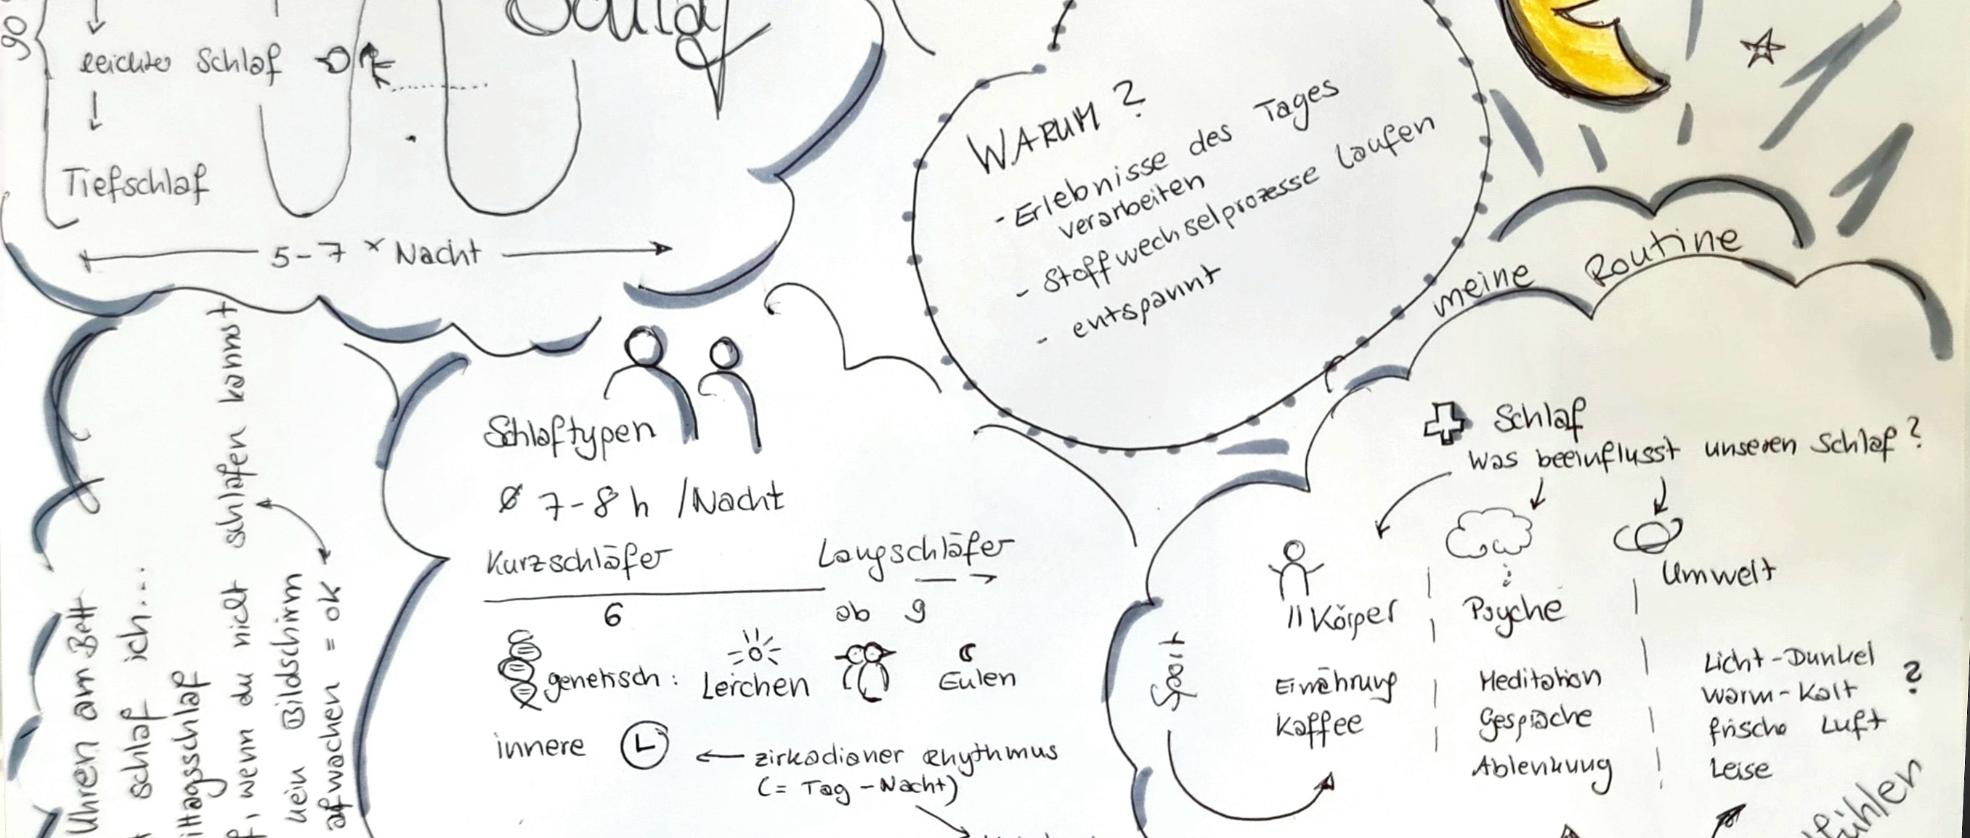 90
Schlaf
leichter Schlaf
Tiefschlaf
5-7 x Nacht
WARUM?
- Erlebnisse des Tages
verarbeiten
- Stoffwechselprozesse laufen
- entspannt
meine Routine
Uhren am Bett
schlaf ich...
ittagsschlaf
, wenn du nicht schlafen kannst
kein Bildschirm
aufwachen = OK
Schlaftypen
Ø 7-8 h /Nacht
Kurzschläfer
Langschläfer
6
ab 9
genetisch: Lerchen
Eulen
innere
← zirkadianer Rhythmus
(= Tag - Nacht)
Schlaf
Was beeinflusst unseren Schlaf?
Körper
Psyche
Umwelt
Sport
Ernährung
Kaffee
Meditation
Gespräche
Ablenkung
Licht-Dunkel
warm-kalt
frische Luft
Leise
?
fühlen